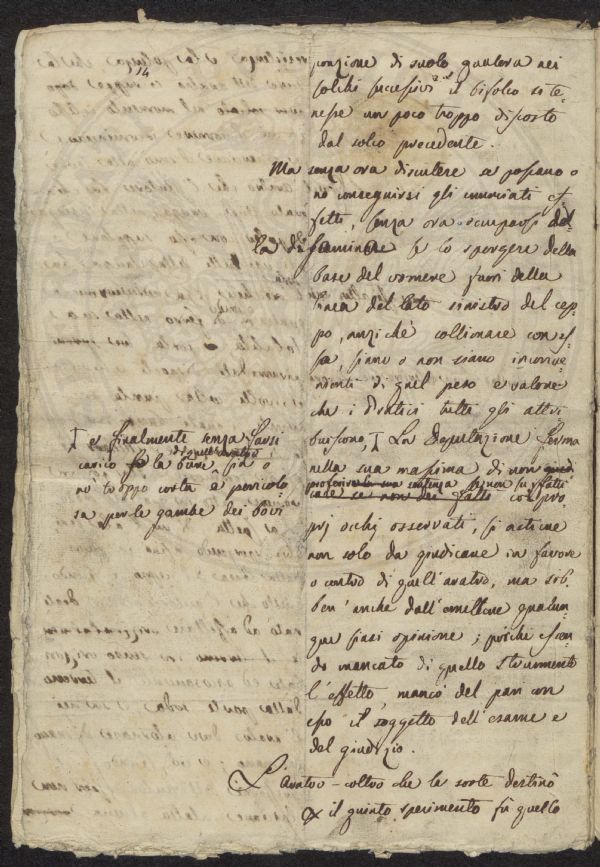 14
porzione di suolo qualora nei
solchi successivi il bifolco si te-
nesse un poco troppo discosto
dal solco precedente.
Ma senza ora discutere se possano o
nò conseguirsi gli ef-
fetti, senza ora
se lo sporgere della
base del vomere fuori della
linea del lato sinistro del cep-
po, anzichè collimare con es-
sa, siano o non siano inconve-
nienti di quel peso e valore
che i Pratici tutti gli attri-
buiscono, La Deputazione ferma
nella sua massima di non
proferire la sua sentenza se non su fatti
con pro-
prj occhj osservati, si astiene
non solo da giudicare in favore
o contro di quell'aratro, ma sib-
ben' anche dall'emettere qualun-
que siasi opinione; poichè essen-
do mancato di quello strumento
l'effetto, mancò del pari con
esso il soggetto dell'esame e
del giudizio.
L'aratro-coltro che la sorte destinò
il quinto sperimento fù quello
e finalmente senza farsi
carico se la bure di quell'aratro sia o
nò troppo corta e pericolo-
sa per le gambe dei bovi